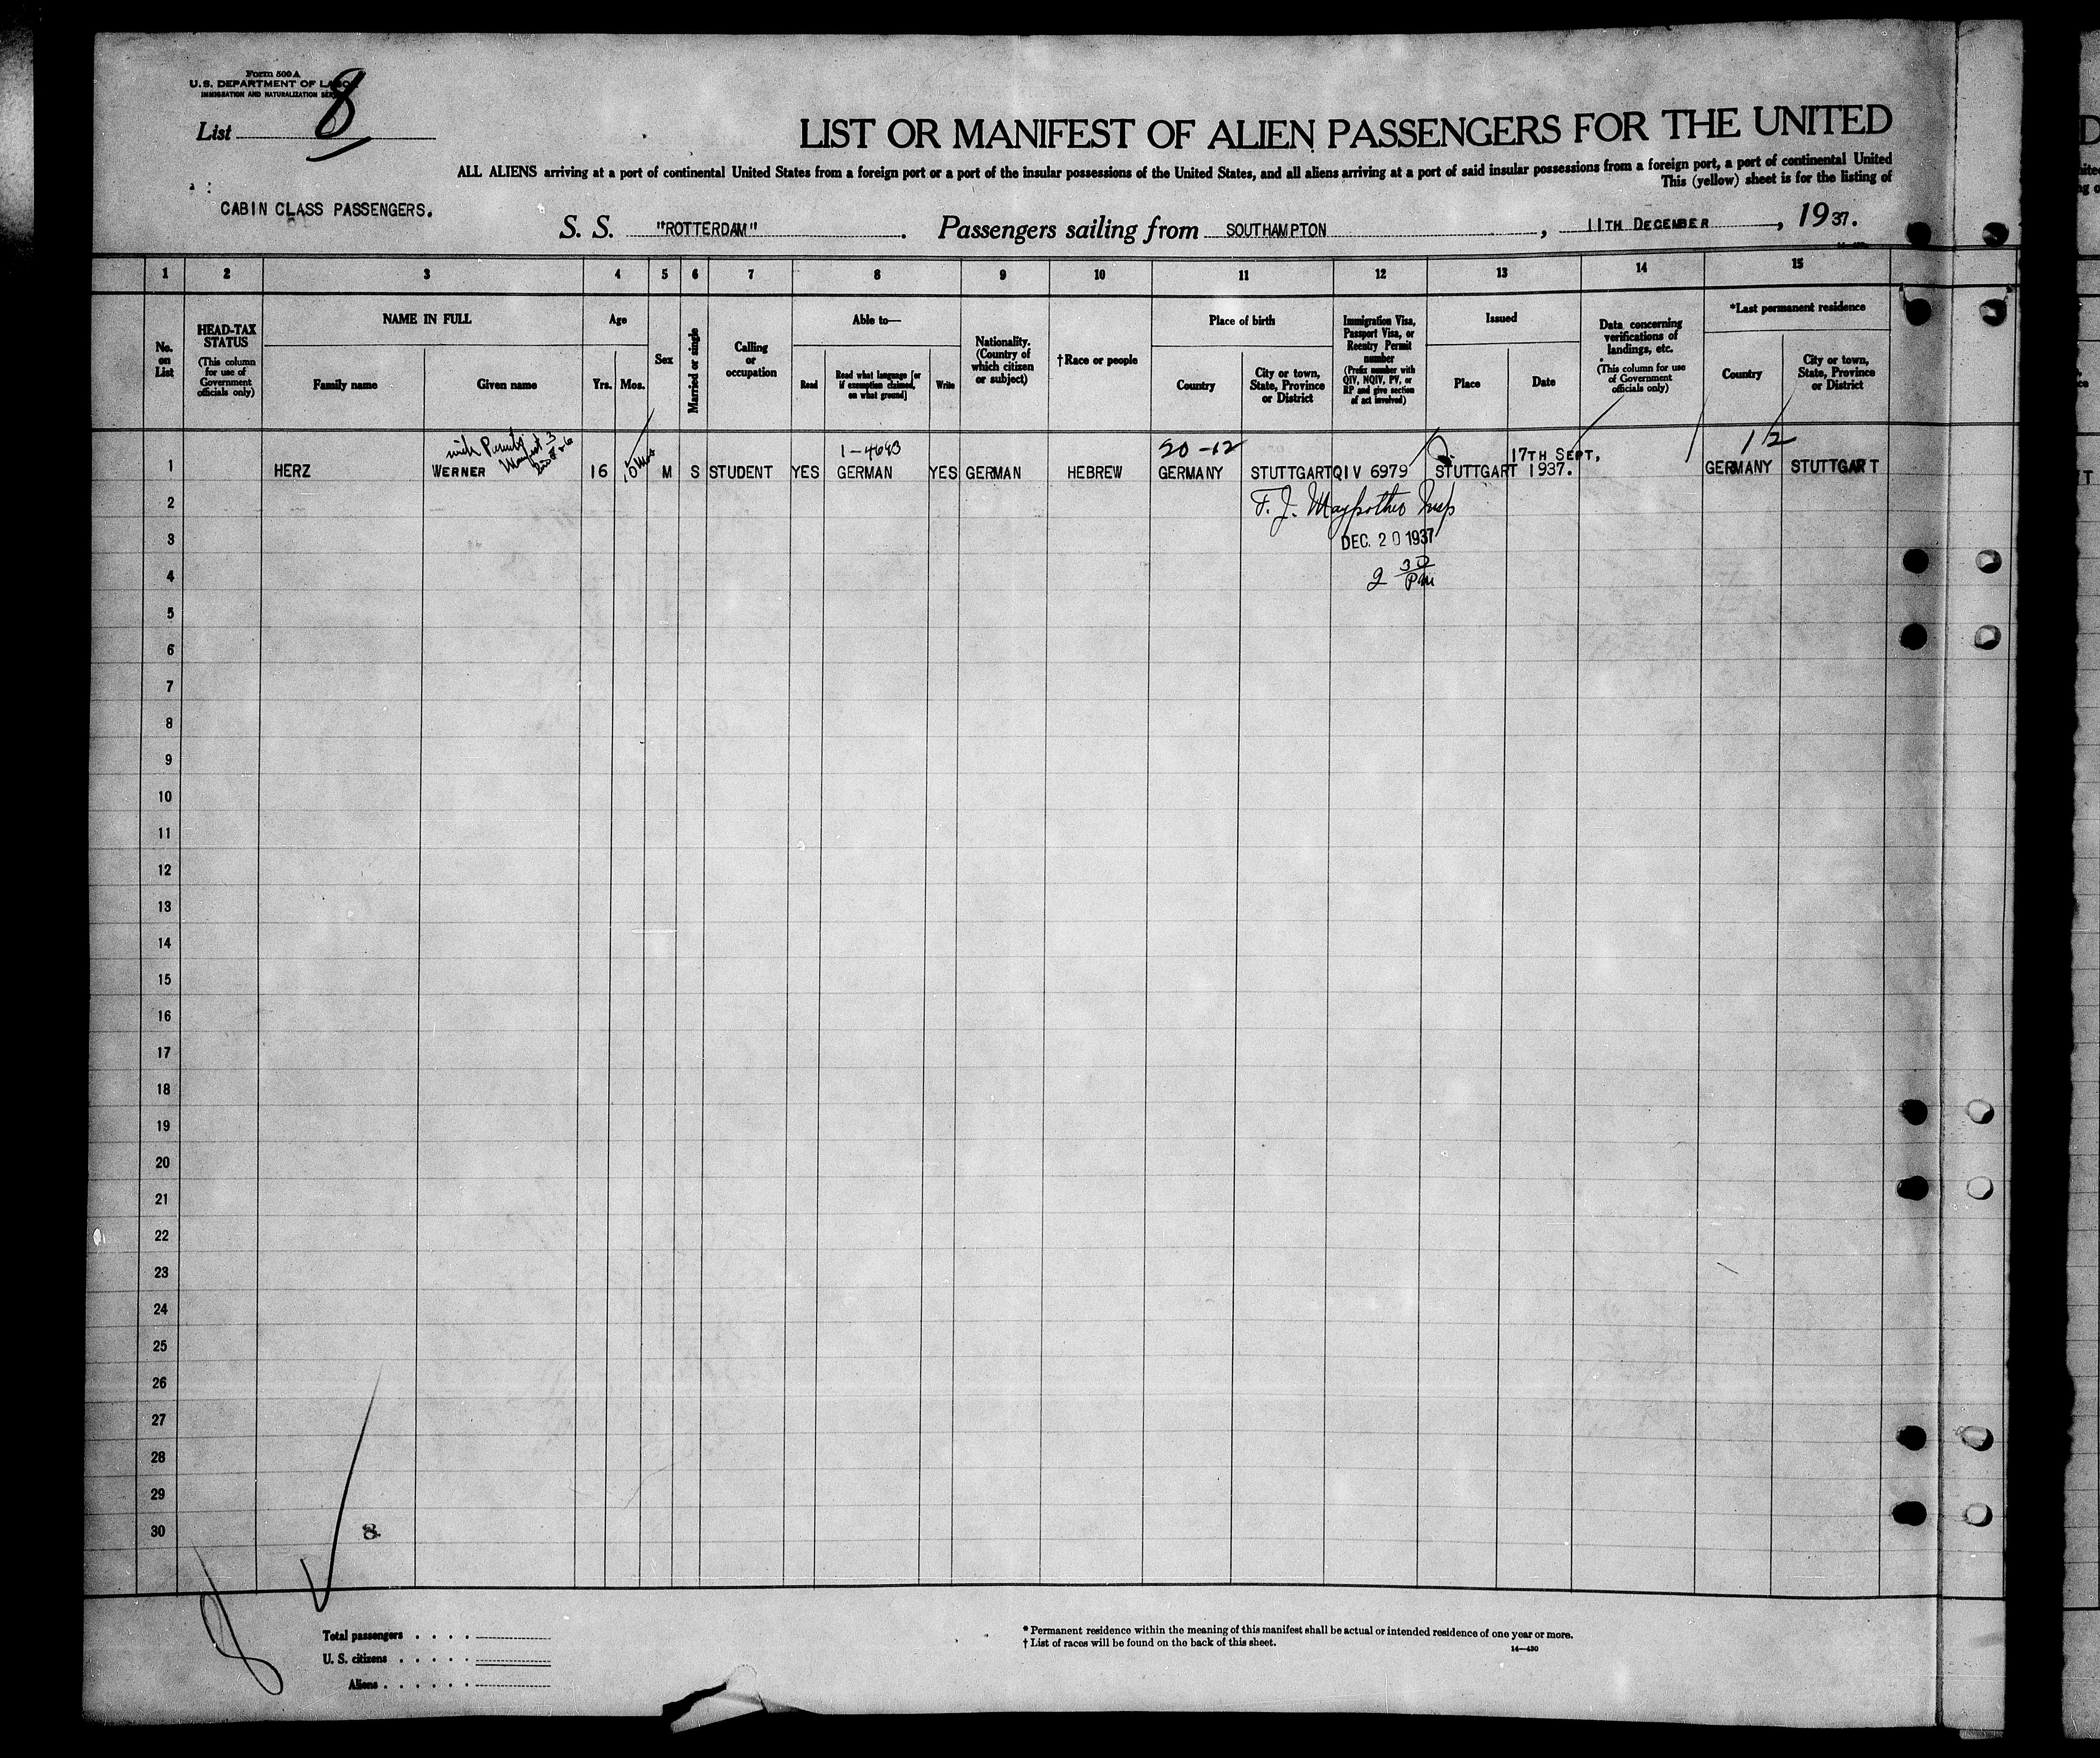 Form 500 A
U. S. DEPARTMENT OF LABOR
IMMIGRATION AND NATURALIZATION
List 8
LIST OR MANIFEST OF ALIEN PASSENGERS FOR THE UNITED
ALL ALIENS arriving at a port of continental United States from a foreign port or a port of the insular possessions of the United States, and all aliens arriving at a port of said insular possessions from a foreign port, a port of continental United
This (yellow) sheet is for the listing of
CABIN CLASS PASSENGERS.
S. S. "ROTTERDAM". Passengers sailing from SOUTHAMPTON, 11TH DECEMBER, 1937.
1 2 3 4 5 6 7 8 9 10 11 12 13 14 15
No. on List
HEAD-TAX STATUS
(This column for use of Government officials only)
NAME IN FULL
Family name
Given name
Age
Yrs. Mos.
Sex
Married or single
Calling or occupation
Able to—
Read
Read what language [or if exemption claimed, on what ground]
Write
Nationality. (Country of which citizen or subject)
†Race or people
Place of birth
Country
City or town, State, Province or District
Immigration Visa, Passport Visa, or Reentry Permit number
(Prefix number with QIV, NQIV, PV, or RP and give section of act involved)
Issued
Place
Date
Data concerning verifications of landings, etc.
(This column for use of Government officials only)
*Last permanent residence
Country
City or town, State, Province or District
1-4693
20-12
1/2
17TH SEPT,
1 HERZ WERNER 16 10 Mos M S STUDENT YES GERMAN YES GERMAN HEBREW GERMANY STUTTGART QIV 6979 STUTTGART 1937. GERMANY STUTTGART
2
3 DEC. 20 1937
4 2 30 PM
5
6
7
8
9
10
11
12
13
14
15
16
17
18
19
20
21
22
23
24
25
26
27
28
29
30 8
Total passengers . . . .
U. S. citizens . . . . .
Aliens . . . . . .
* Permanent residence within the meaning of this manifest shall be actual or intended residence of one year or more.
† List of races will be found on the back of this sheet.
14—430